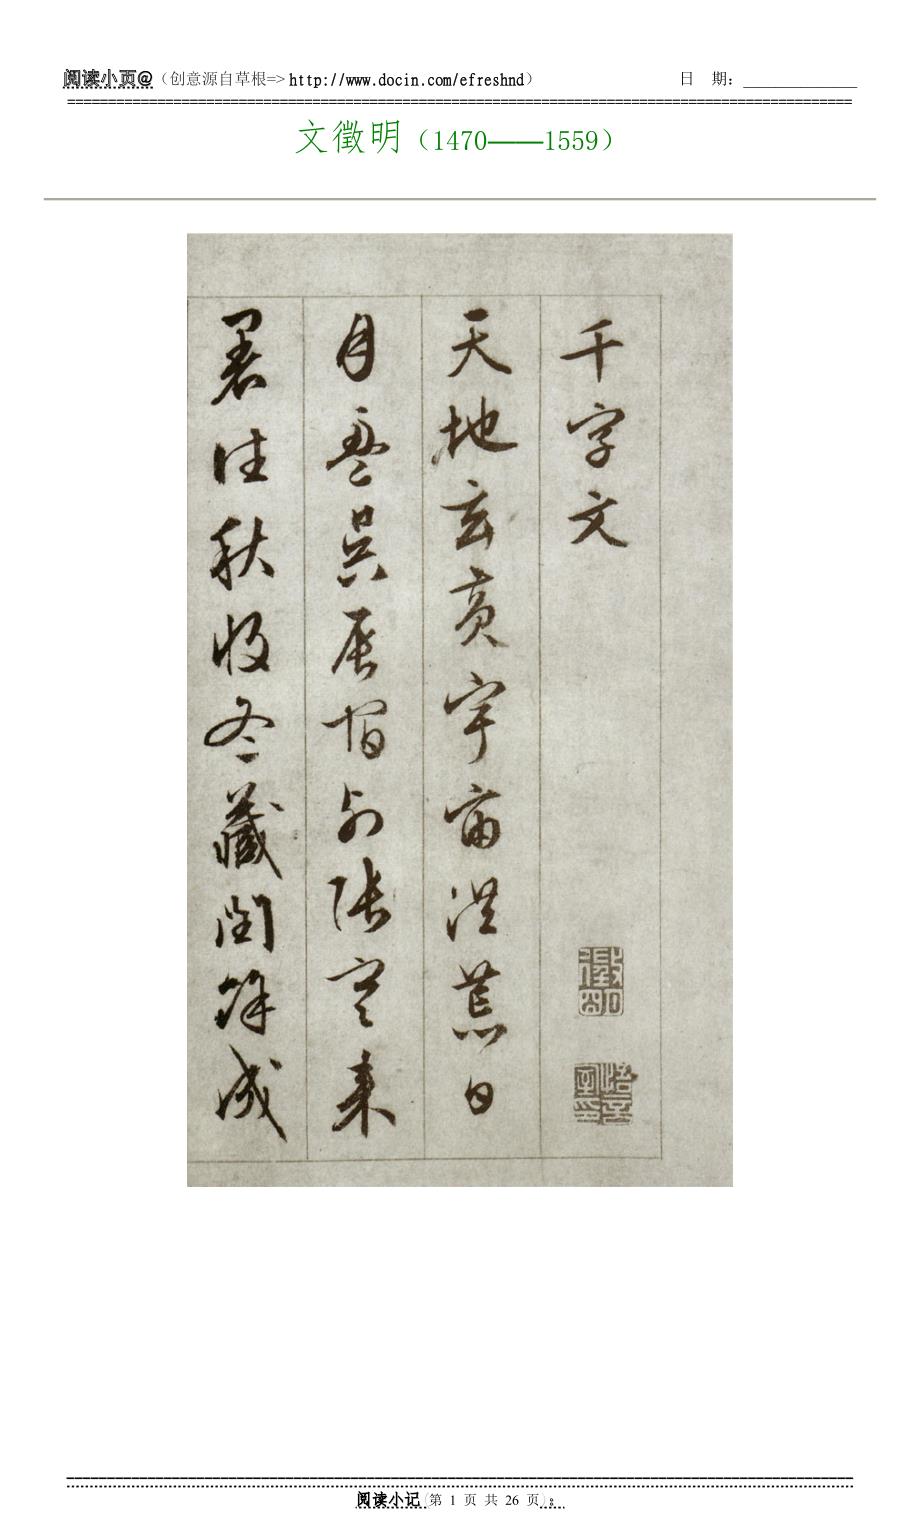 阅读小页@（创意源自草根=> http://www.docin.com/efreshnd） 日 期：______________
文徵明（1470——1559）
千字文
徵明
悟言室印
天地玄黄宇宙洪荒日
月盈昃辰宿列張寒来
暑往秋收冬藏閏餘成
阅读小记（第 1 页 共 26 页）；